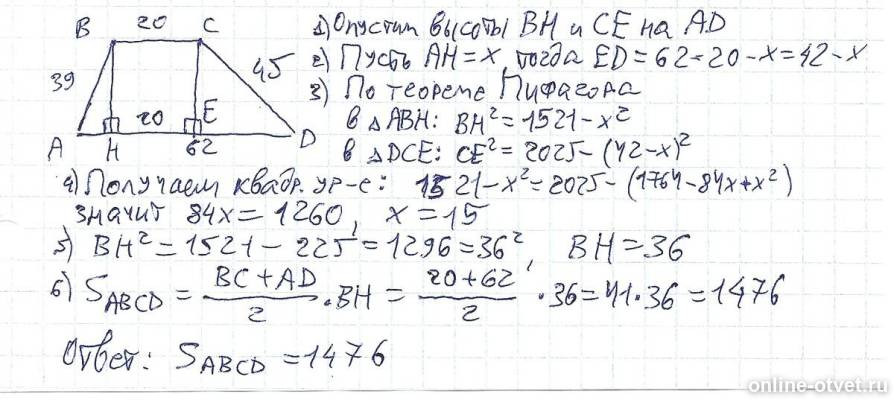 B 20 C
39
45
20 E
A H 62 D
1) Опустим высоты BH и CE на AD
2) Пусть AH = x, тогда ED = 62 - 20 - x = 42 - x
3) По теореме Пифагора
в △ABH: BH² = 1521 - x²
в △DCE: CE² = 2025 - (42 - x)²
4) Получаем квадр. ур-е: 1521 - x² = 2025 - (1764 - 84x + x²)
значит 84x = 1260, x = 15
5) BH² = 1521 - 225 = 1296 = 36², BH = 36
6) S_ABCD = (BC + AD)/2 · BH = (20 + 62)/2 · 36 = 41 · 36 = 1476
Ответ: S_ABCD = 1476
online-otvet.ru